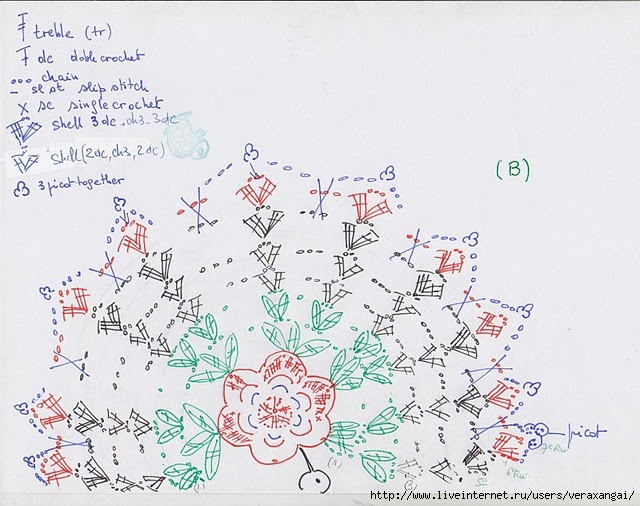 treble (tr)
dc doblecrochet
chain
sl st slip stitch
x sc single crochet
shell 3dc, ch3, 3dc
Shell (2dc, ch3, 2dc)
3 picot together
(B)
picot
http://www.liveinternet.ru/users/veraxangai/